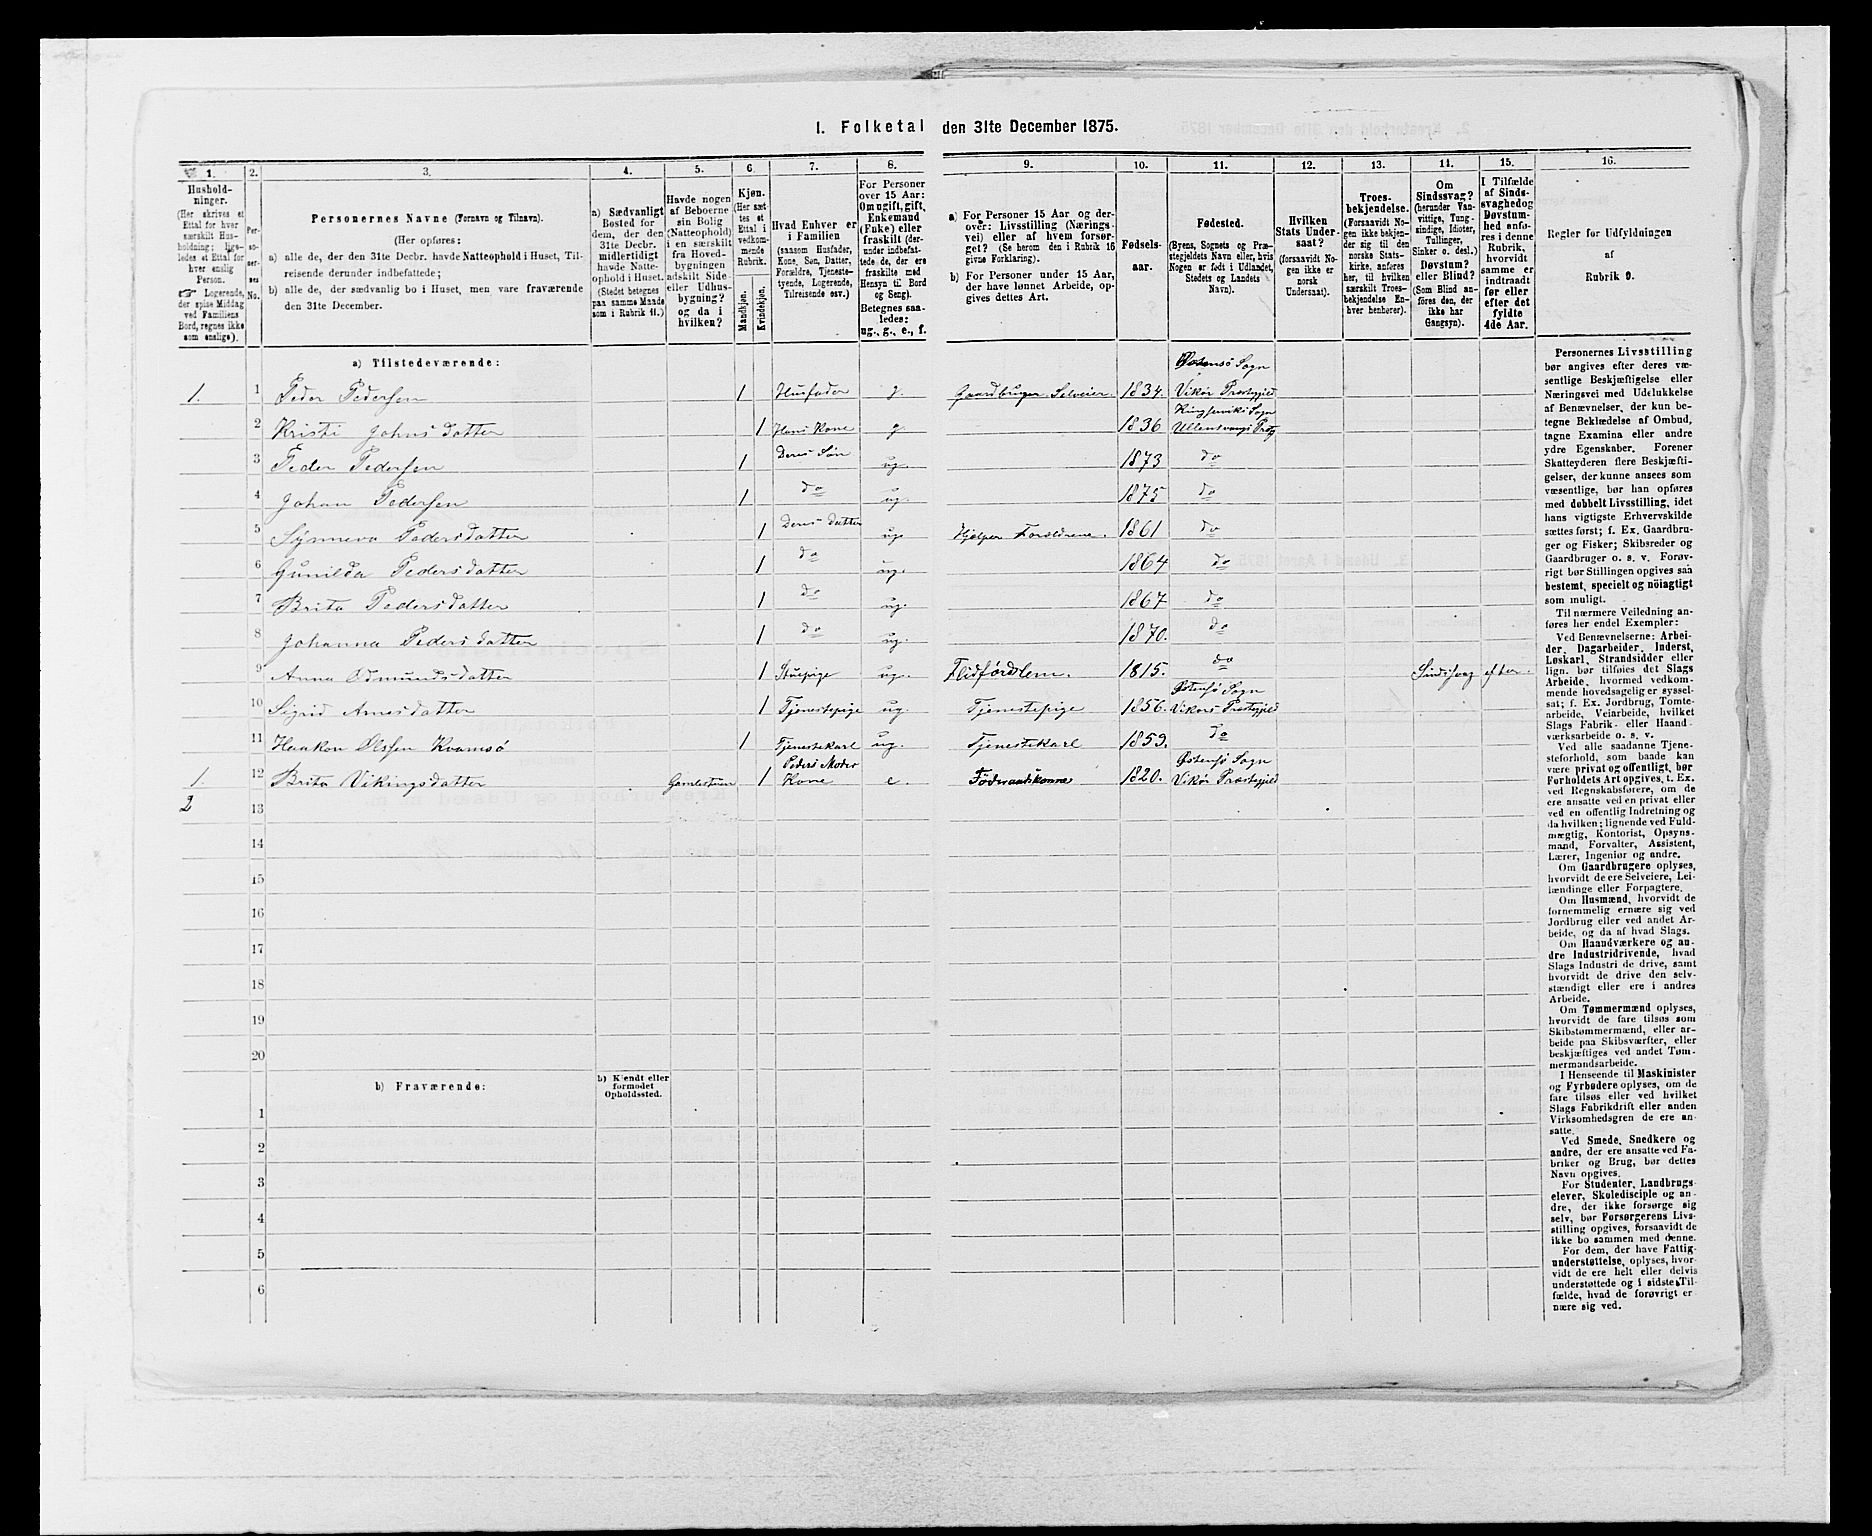 1. Folketal den 31te December 1875.
1. 2. 3. 4. 5. 6. 7. 8. 9. 10. 11. 12. 13. 14. 15. 16.
Hushold-
ninger.
(Her skrives et
Ettal for hver
særskilt Hus-
holdning; lige-
ledes et Ettal for
hver enslig
Person.
☞ Logerende,
der spise Middag
ved Familiens
Bord, regnes ikke
som enslige).
Per-
so-
ner-
nes
No.
Personernes Navne (Fornavn og Tilnavn).
(Her opføres:
a) alle de, der den 31te Decbr. havde Natteophold i Huset, Til-
reisende derunder indbefattede;
b) alle de, der sædvanlig bo i Huset, men vare fraværende
den 31te December.
a) Sædvanligt
Bosted for
dem, der den
31te Decbr.
midlertidigt
havde Natte-
ophold i Huset.
(Stedet betegnes
paa samme Maade
som i Rubrik 11.)
Havde nogen
af Beboerne
sin Bolig
(Natteophold)
i en særskilt
fra Hoved-
bygningen
adskilt Side-
eller Udhus-
bygning?
og da i
hvilken?
Kjøn.
(Her sæt-
tes et
Ettal i
vedkom-
mende
Rubrik.
Mandkjøn.
Kvindekjøn.
Hvad Enhver er
i Familien
(saasom Husfader,
Kone, Søn, Datter,
Forældre, Tjeneste-
tyende, Logerende,
Tilreisende osv.)
For Personer
over 15 Aar:
Om ugift, gift,
Enkemand
(Enke) eller
fraskilt (der-
under indbefat-
tede de, der ere
fraskilte med
Hensyn til Bord
og Seng).
Betegnes saa-
ledes:
ug., g., e., f.
a) For Personer 15 Aar og der-
over: Livsstilling (Nærings-
vei) eller af hvem forsør-
get? (Se herom den i Rubrik 16
givne Forklaring).
b) For Personer under 15 Aar,
der have lønnet Arbeide, op-
gives dettes Art.
Fødsels-
aar.
Fødested.
(Byens, Sognets og Præ-
stegjeldets Navn eller, hvis
Nogen er født i Udlandet,
Stedets og Landets
Navn).
Hvilken
Stats Under-
saat?
(forsaavidt No-
gen ikke er
norsk
Undersaat).
Troes-
bekjendelse.
(Forsaavidt No-
gen ikke bekjen-
der sig til den
norske Stats-
kirke, anføres
her, til hvilken
særskilt Troes-
bekjendelse En-
hver henhører).
Om
Sindssvag?
(herunder Van-
vittige, Tung-
sindige, Idioter,
Tullinger,
Sinker o. desl.)
Døvstum?
eller Blind?
(Som Blind an-
føres den, der
ikke har
Gangsyn).
I Tilfælde
af Sinds-
svaghed og
Døvstum-
hed anfø-
res i denne
Rubrik,
hvorvidt
samme er
indtraadt
før eller
efter det
fyldte
4de Aar.
Regler for Udfyldningen
af
Rubrik 9.
a) Tilstedeværende:
1. 1 Peder Pedersen 1 Husfader g. Gaardbruger Selveier. 1834. Østensö Sogn Vikör Præstegjeld
2 Kristi Johnsdatter 1 Hans Kone g. 1836 Kingserviks Sogn Ullensvangs Prstg
3 Peder Pedersen 1 Deres Søn ug. 1873 do
4 Johan Pedersen 1 do ug. 1875 do
5 Synneva Pedersdatter 1 Deres Datter ug. Hjelper Forældrene. 1861 do
6 Gunilda Pedersdatter 1 do ug. 1864 do
7 Brita Pedersdatter 1 do ug. 1867 do
8 Johanna Pedersdatter 1 do ug. 1870. do
9 Anna Odmundsdatter 1 Stuepige ug. 1815. do Sindssvag efter.
10 Sigrid Arnesdatter 1 Tjenestepige ug. Tjenestepige 1856. Östensö Sogn Vikörs Prstegjeld
11 Haakon Olssen Kvamsö 1 Tjenestekarl ug. Tjenestekarl 1859. do
1. 12 Brita Vikingsdatter 1 Peders Moder Kone e. Föderaadskonne 1820. Östensö Sogn Vikör Præstegjeld
2
13
14
15
16
17
18
19
20
b) Fraværende:
b) Kjendt eller
formodet
Opholdssted.
1
2
3
4
5
6
Personernes Livsstilling
bør angives efter deres væ-
sentlige Beskjæftigelse eller
Næringsvei med Udelukkelse
af Benævnelser, der kun be-
tegne Beklædelse af Ombud,
tagne Examina eller andre
ydre Egenskaber. Forener
Skatteyderen flere Beskjæfti-
gelser, der kunne ansees som
væsentlige, bør han opføres
med dobbelt Livsstilling, idet
hans vigtigste Erhvervskilde
sættes først; f. Ex. Gaardbru-
ger og Fisker; Skibsreder og
Gaardbruger o. s. v. Forøv-
rigt bør Stillingen opgives saa
bestemt, specielt og nöiagtigt
som muligt.
Til nærmere Veiledning an-
føres her endel Exempler:
Ved Benævnelserne: Arbei-
der, Dagarbeider, Inderst,
Løskarl, Strandsidder eller
lign. bør tilføies det Slags
Arbeide, hvormed vedkom-
mende hovedsagelig er syssel-
sat; f. Ex. Jordbrug, Tomte-
arbeide, Veiarbeide, hvilket
Slags Fabrik- eller Haand-
værksarbeide o. s. v.
Ved alle saadanne Tjene-
steforhold, som baade kan
være privat og offentligt, bør
Forholdets Art opgives, t. Ex.
ved Regnskabsførere, om de
ere ansatte ved en privat eller
ved en offentlig Indretning og
da hvilken; lignende ved Fuld-
mægtig, Kontorist, Opsyns-
mand, Forvalter, Assistent,
Lærer, Ingeniør og andre.
Om Gaardbrugere oplyses,
hvorvidt de ere Selveiere, Lei-
lændinge eller Forpagtere.
Om Husmænd, hvorvidt de
fornemmelig ernære sig ved
Jordbrug eller ved andet Ar-
beide, og da af hvad Slags.
Om Haandværkere og an-
dre Industridrivende, hvad
Slags Industri de drive, samt
hvorvidt de drive den selv-
stændigt eller ere i andres
Arbeide.
Om Tømmermænd oplyses,
hvorvidt de fare tilsøs som
Skibstømmermænd, eller ar-
beide paa Skibsværfter, eller
beskjæftiges ved andet Tøm-
mermandsarbeide.
I Henseende til Maskinister
og Fyrbødere oplyses, om de
fare tilsøs eller ved hvilket
Slags Fabrikdrift eller anden
Virksomhedsgren de ere an-
satte.
Ved Smede, Snedkere og
andre, der ere ansatte ved Fa-
briker og Brug, bør dettes
Navn opgives.
For Studenter, Landbrugs-
elever, Skoledisciple og an-
dre, der ikke forsørge sig
selv, bør Forsørgerens Livs-
stilling opgives, forsaavidt de
ikke bo sammen med denne.
For dem, der have Fattig-
understøttelse, oplyses, hvor-
vidt de ere helt eller delvis
understøttede og i sidste Til-
fælde, hvad de forøvrigt er-
nære sig ved.